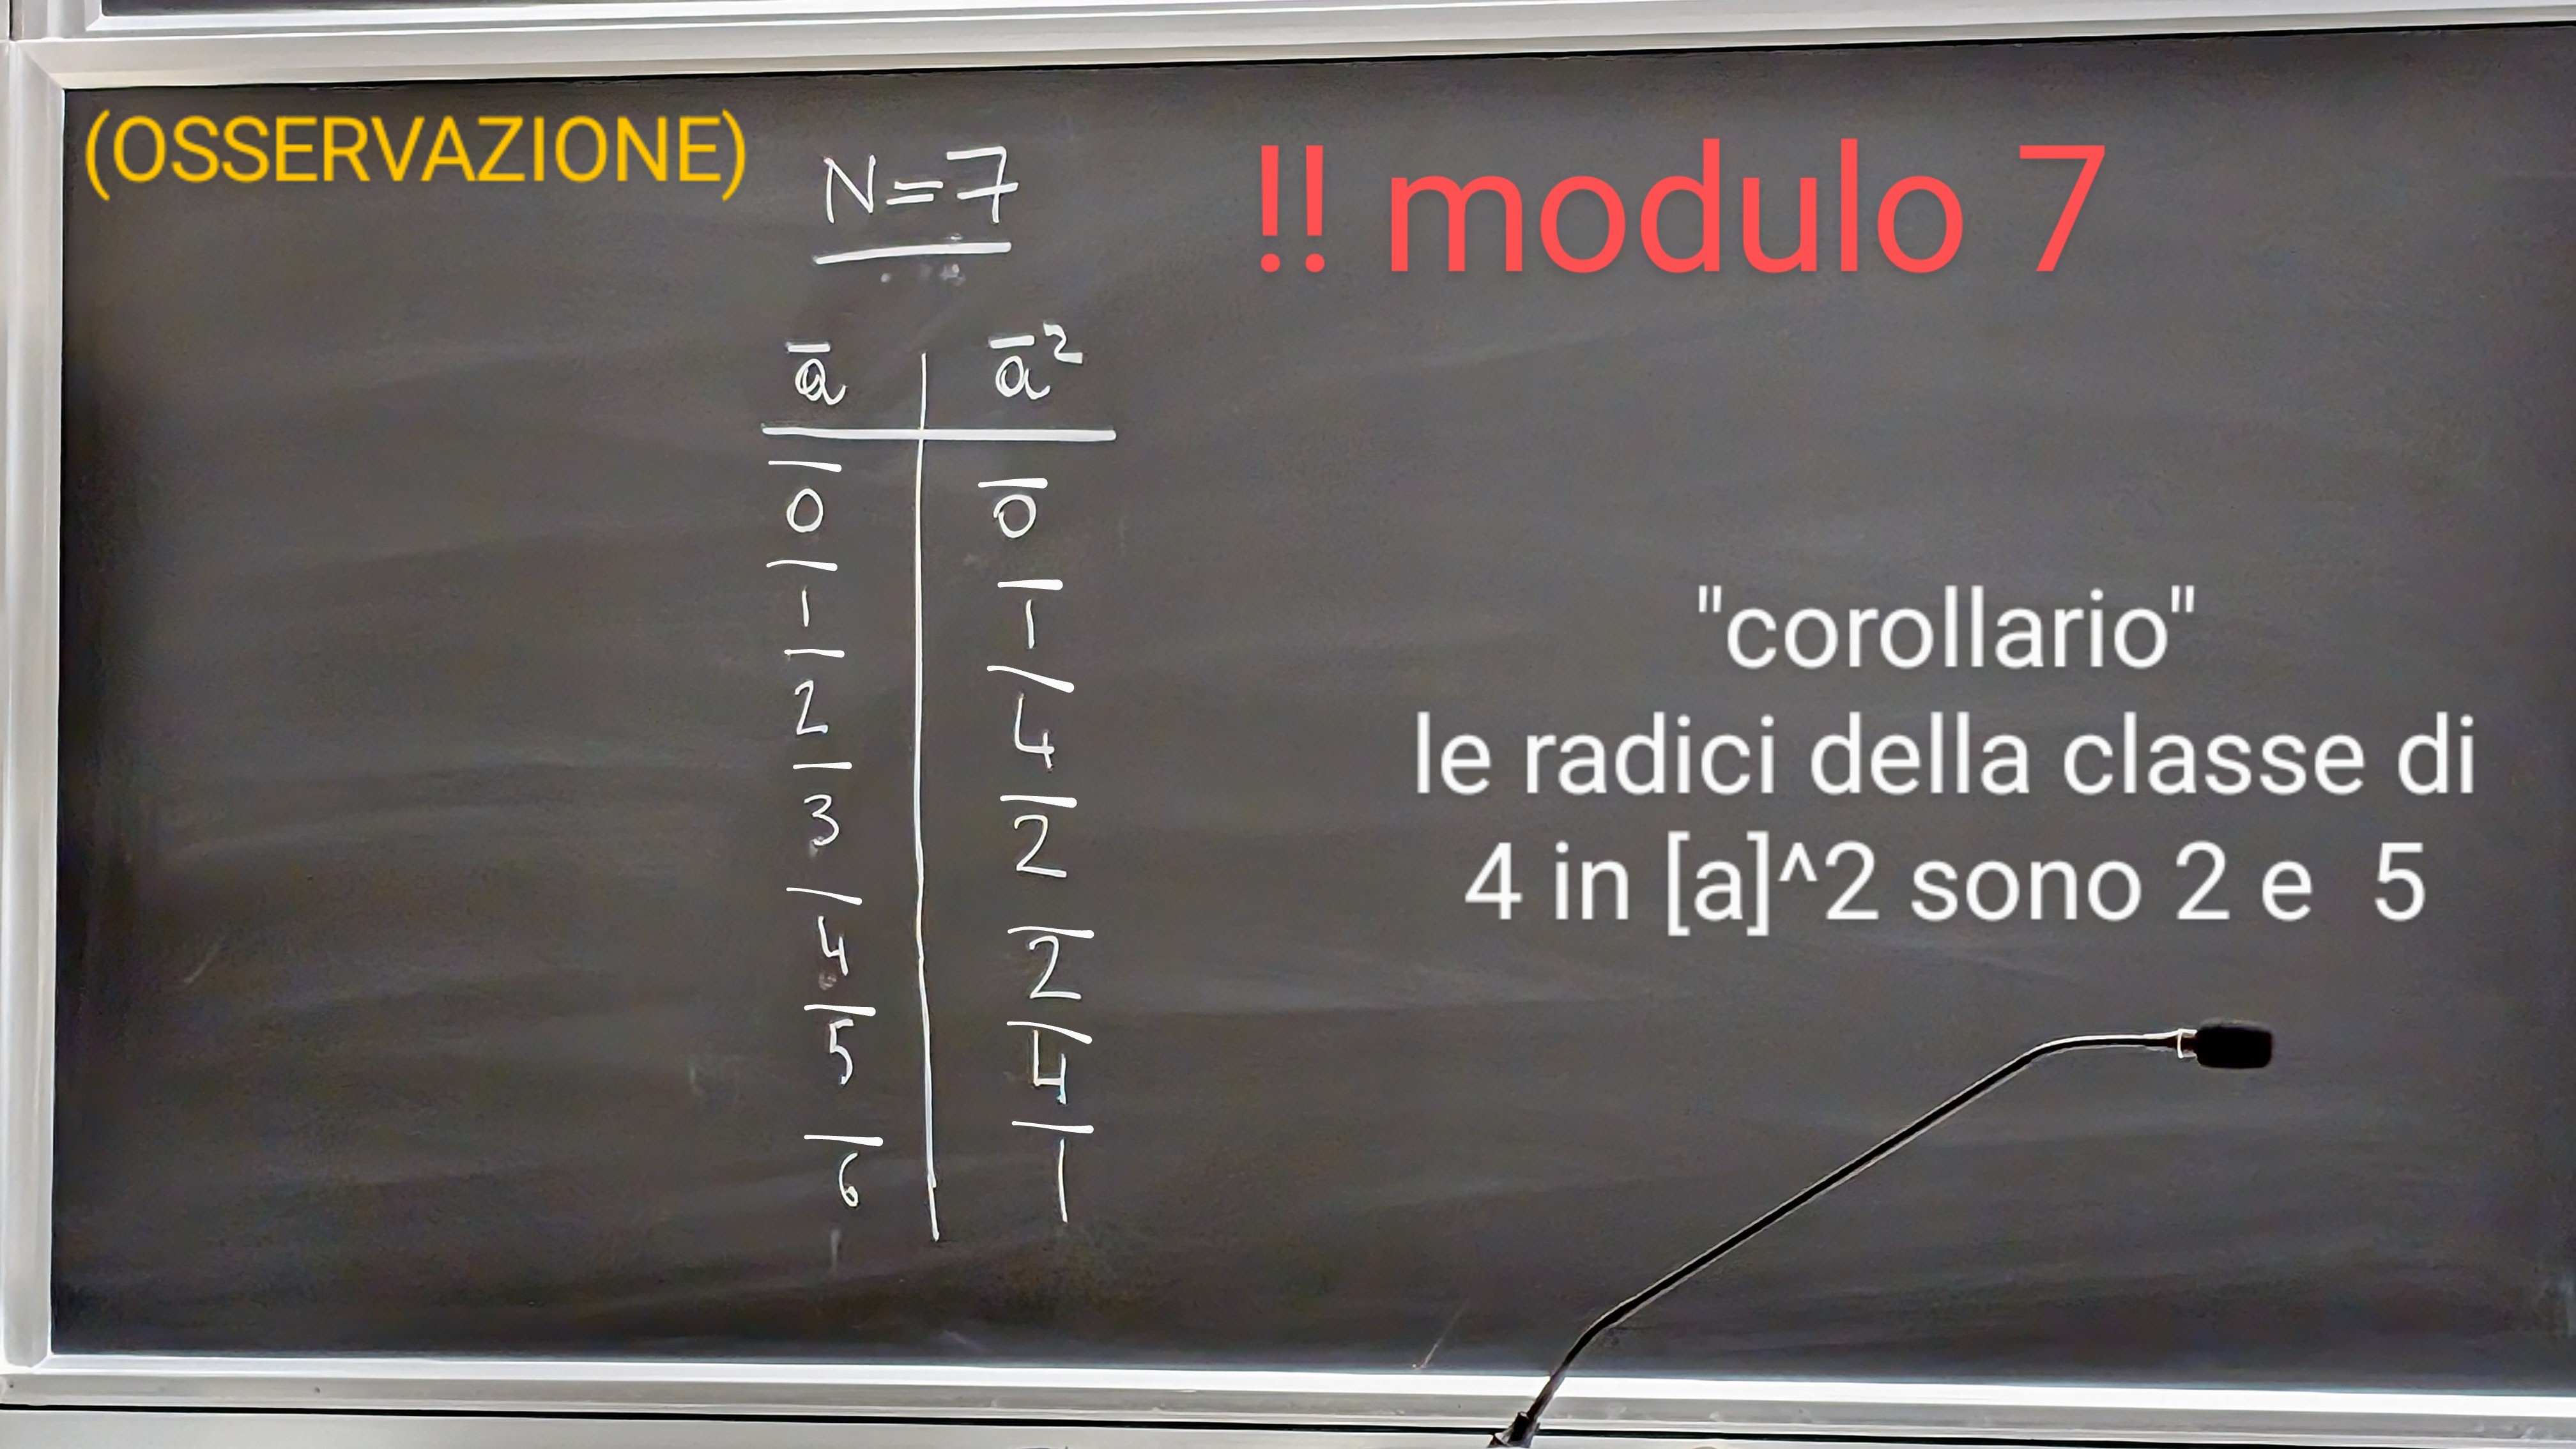 (OSSERVAZIONE)
N=7
!! modulo 7
a̅ a̅²
0̅ 0̅
1̅ 1̅
2̅ 4̅
3̅ 2̅
4̅ 2̅
5̅ 4̅
6̅ 1̅
"corollario"
le radici della classe di
4 in [a]^2 sono 2 e 5